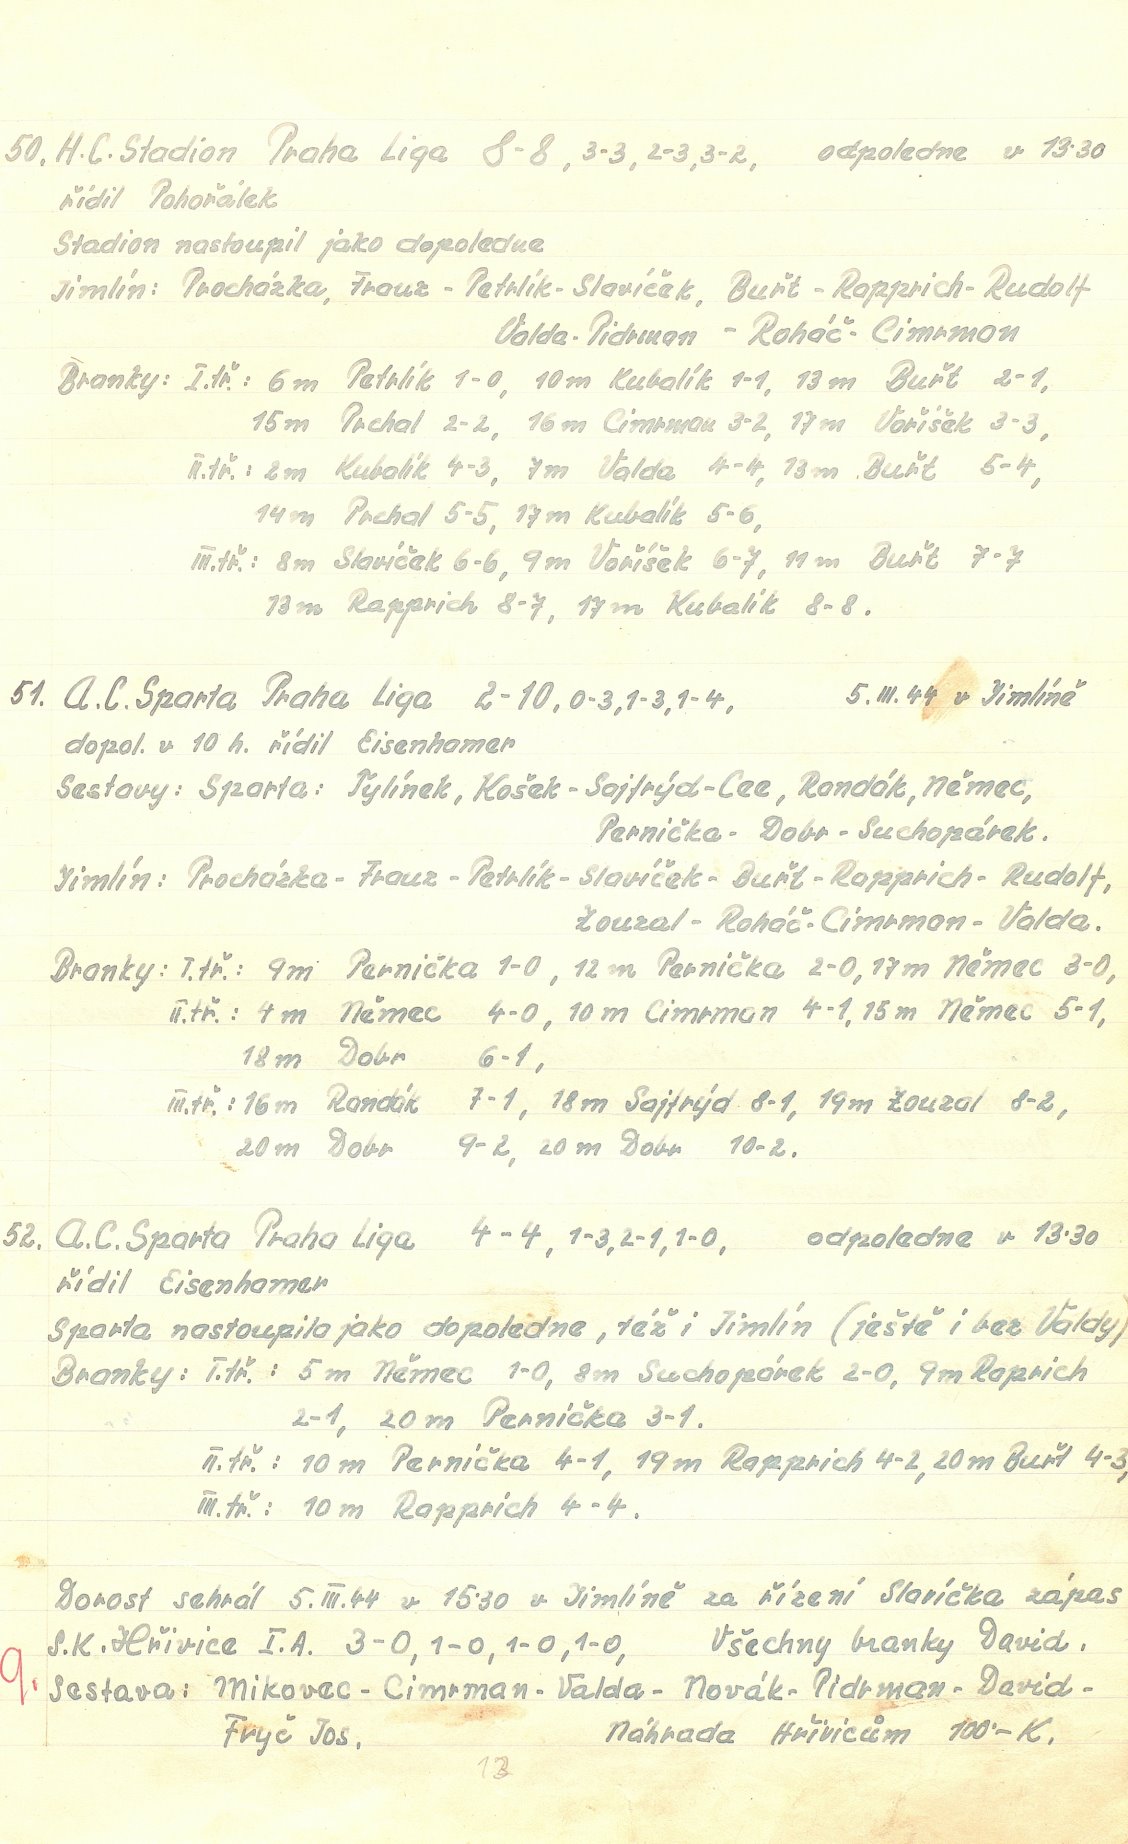 50. H.C. Stadion Praha Liga 8-8, 3-3, 2-3, 3-2, odpoledne v 13·30
řídil Pohořálek
Stadion nastoupil jako dopoledne
Jimlín: Procházka, Frauz - Petrlík - Slavíček, Buřt - Rapprich - Rudolf
Valda - Pidrman - Roháč - Cimrman
Branky: I.tř.: 6m Petrlík 1-0, 10m Kubalík 1-1, 13m Buřt 2-1,
15m Prchal 2-2, 16m Cimrman 3-2, 17m Voříšek 3-3,
II.tř.: 2m Kubalík 4-3, 7m Valda 4-4, 13m Buřt 5-4,
14m Prchal 5-5, 17m Kubalík 5-6,
III.tř.: 8m Slavíček 6-6, 9m Voříšek 6-7, 11m Buřt 7-7
13m Rapprich 8-7, 17m Kubalík 8-8.
51. A.C. Sparta Praha Liga 2-10, 0-3, 1-3, 1-4, 5.III.44 v Jimlíně
dopol. v 10 h. řídil Eisenhamer
Sestavy: Sparta: Tylínek, Košek - Sajfrýd - Cee, Randák, Němec,
Pernička - Dobr - Suchopárek.
Jimlín: Procházka - Frauz - Petrlík - Slavíček - Buřt - Rapprich - Rudolf,
Zouzal - Roháč - Cimrman - Valda.
Branky: I.tř.: 9m Pernička 1-0, 12m Pernička 2-0, 17m Němec 3-0,
II.tř.: 4m Němec 4-0, 10m Cimrman 4-1, 15m Němec 5-1,
18m Dobr 6-1,
III.tř.: 16m Randák 7-1, 18m Sajfrýd 8-1, 19m Zouzal 8-2,
20m Dobr 9-2, 20m Dobr 10-2.
52. A.C. Sparta Praha Liga 4-4, 1-3, 2-1, 1-0, odpoledne v 13·30
řídil Eisenhamer
Sparta nastoupila jako dopoledne, též i Jimlín (ještě i bez Valdy)
Branky: I.tř.: 5m Němec 1-0, 8m Suchopárek 2-0, 9m Raprich
2-1, 20m Pernička 3-1.
II.tř.: 10m Pernička 4-1, 19m Rapprich 4-2, 20m Buřt 4-3,
III.tř.: 10m Rapprich 4-4.
Dorost sehrál 5.III.44 v 15·30 v Jimlíně za řízení Slavíčka zápas
9. S.K. Hřivice I.A. 3-0, 1-0, 1-0, 1-0, Všechny branky David.
Sestava: Mikovec - Cimrman - Valda - Novák - Pidrman - David -
Fryč Jos. Náhrada Hřivicům 100·- K.